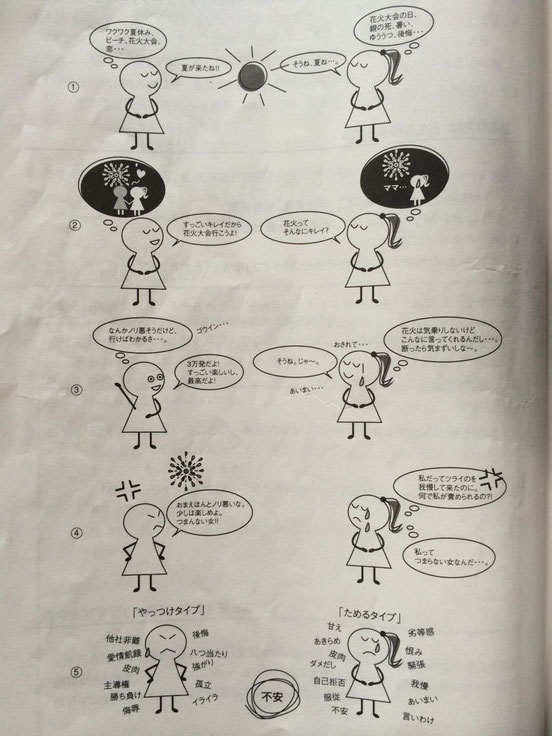 ワクワク夏休み、
ビーチ、花火大会、
恋・・・
夏が来たね!!
そうね、夏ね・・・。
花火大会の日、
親の死、暑い、
ゆううつ、後悔・・・
①
ママ・・・
②
すっごいキレイだから
花火大会行こうよ!
花火って
そんなにキレイ?
なんかノリ悪そうだけど、
行けばわかるさ・・・。
ゴウイン・・・
3万発だよ!
すっごい楽しいし、
最高だよ!
おされて・・・
そうね。じゃ〜。
あいまい・・・
花火は気乗りしないけど
こんなに言ってくれるんだし・・・。
断ったら気まずいしな〜。
③
おまえほんとノリ悪いな。
少しは楽しめよ。
つまんない女!!
私だってツライのを
我慢して来たのに。
何で私が責められるの?!
私って
つまらない女なんだ・・・。
④
「やっつけタイプ」
他社非難
愛情飢餓
皮肉
主導権
勝ち負け
侮辱
後悔
八つ当たり
強がり
孤立
イライラ
⑤
不安
「ためるタイプ」
甘え
あきらめ
皮肉
ダメだし
自己拒否
服従
不安
劣等感
恨み
緊張
我慢
あいまい
言いわけ